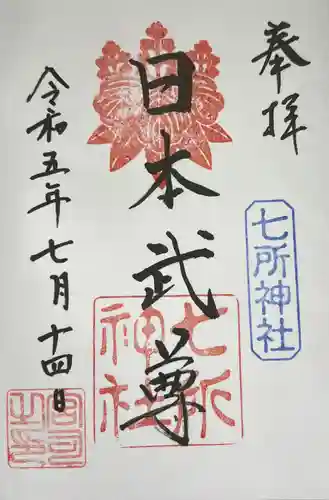 奉拝
七所神社
日本武尊
七所神社
令和五年七月十四日
宮司之印